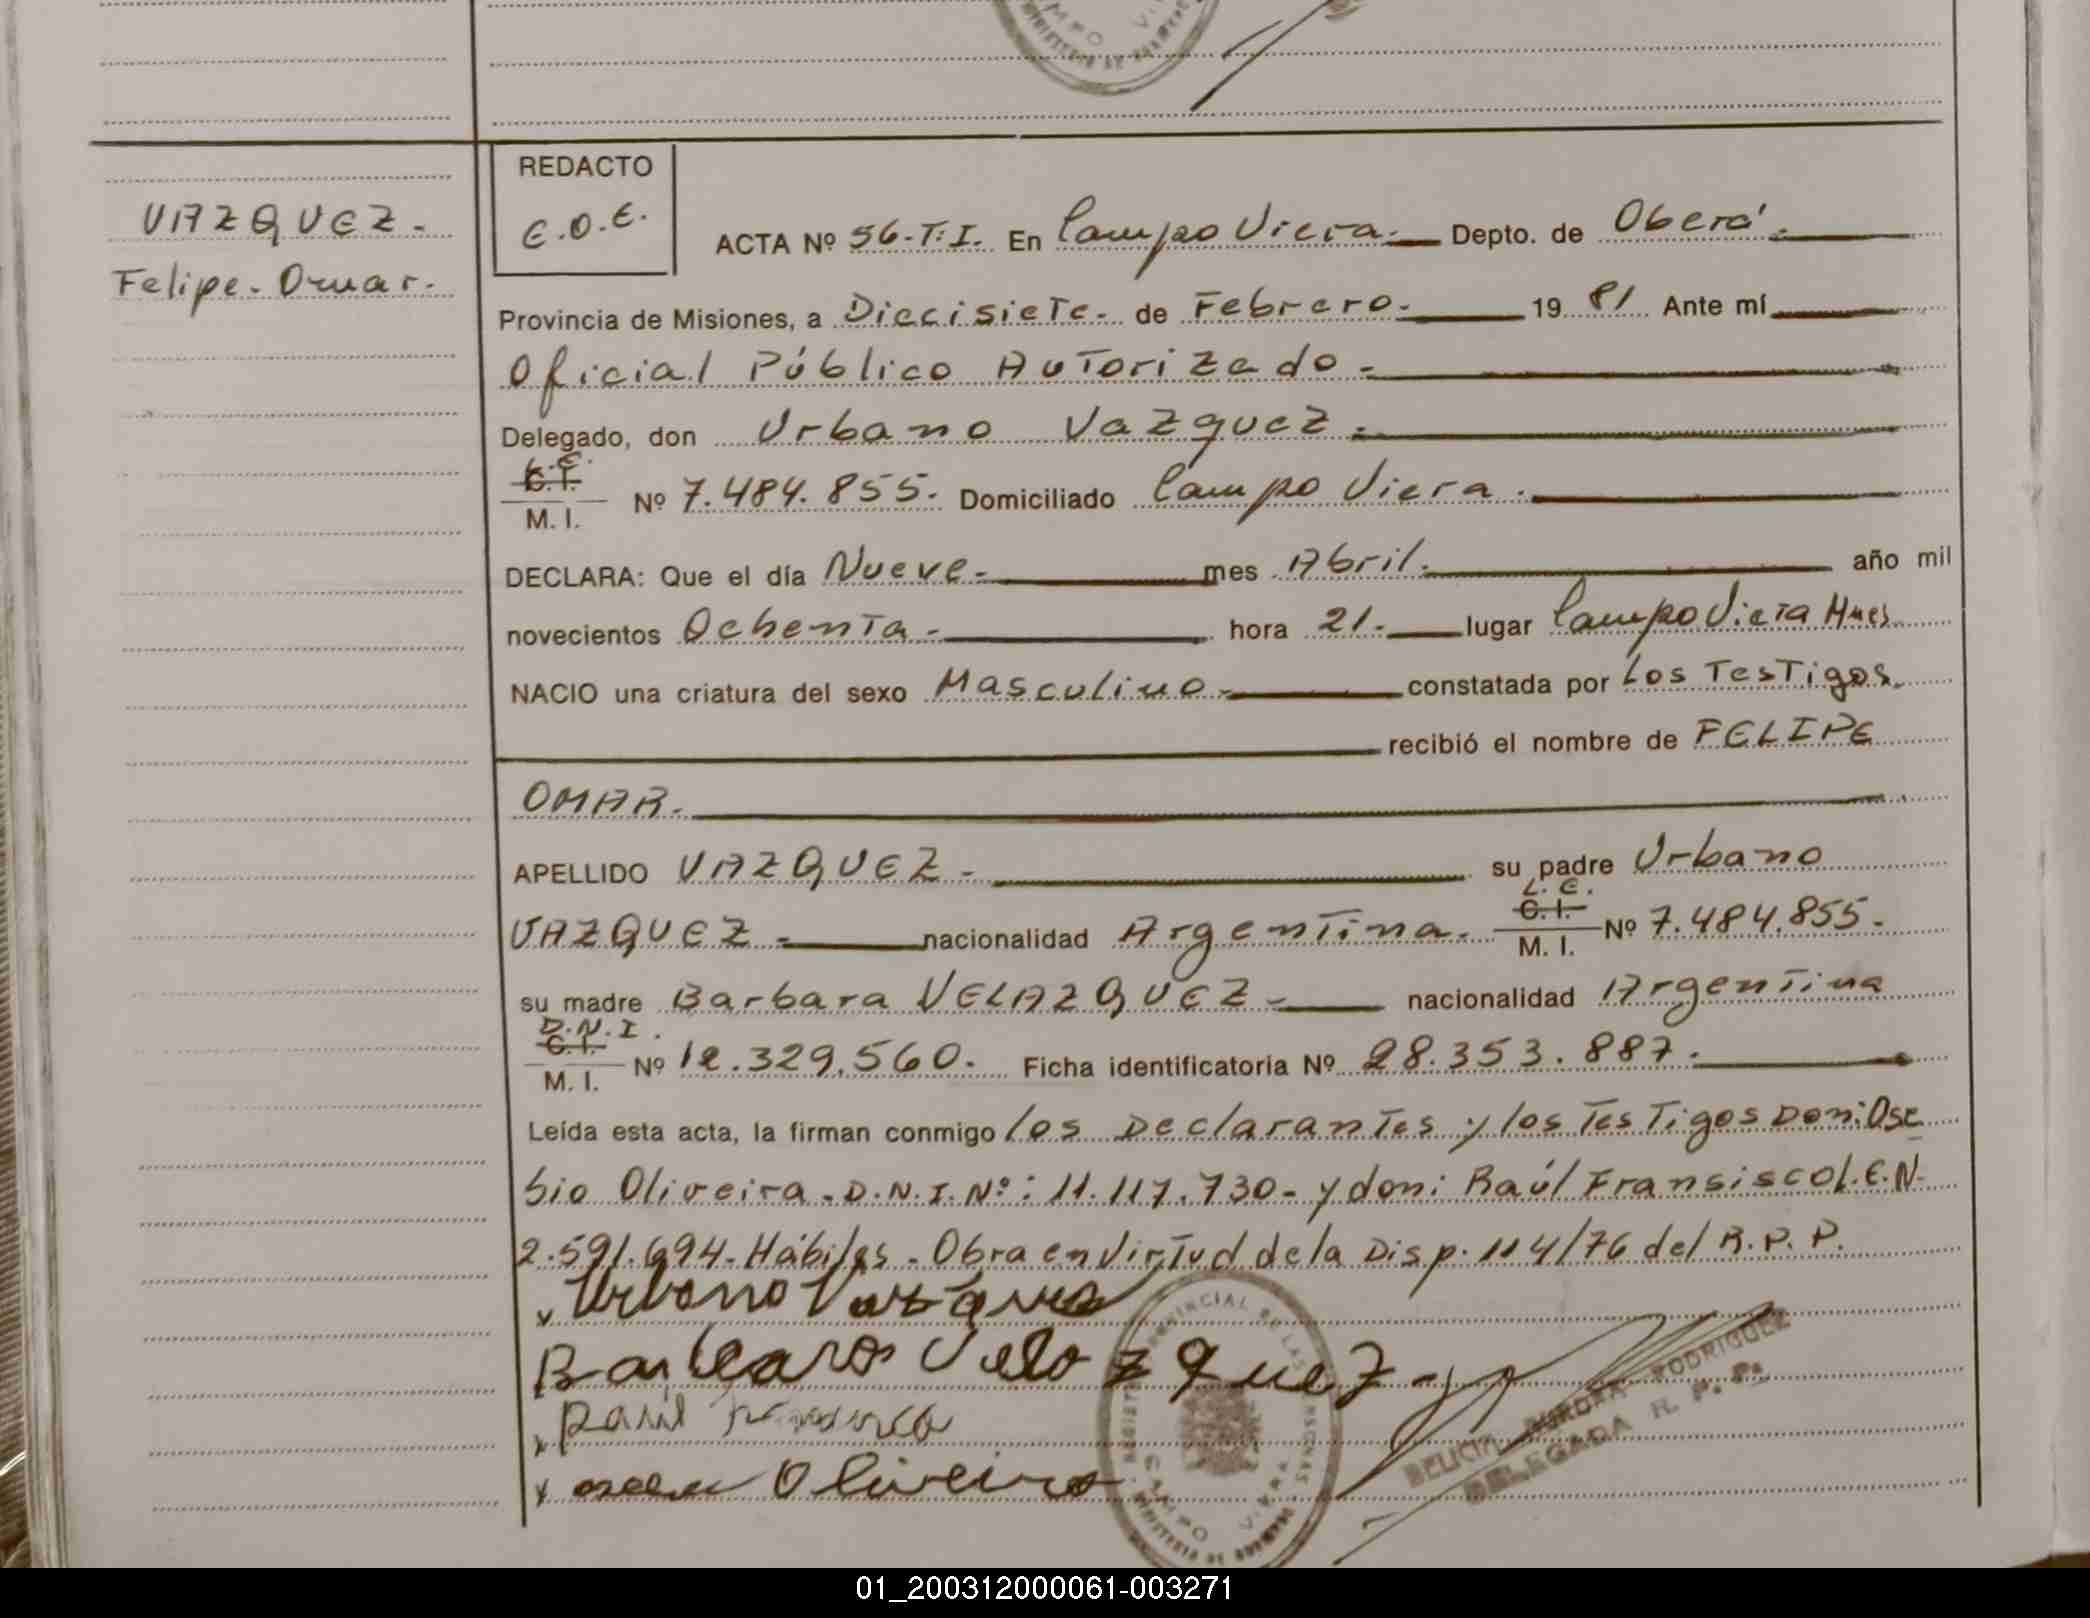 VAZQUEZ.
Felipe. Omar.
REDACTO
E.O.E.
ACTA Nº 56.T.I. En Campo Viera. Depto. de Oberá.
Provincia de Misiones, a Diecisiete. de Febrero. 1981 Ante mí
Oficial Público Autorizado.
Delegado, don Urbano Vazquez.
L.E.
C.I.
M. I. Nº 7.484.855. Domiciliado Campo Viera.
DECLARA: Que el día Nueve. mes Abril. año mil
novecientos Ochenta. hora 21. lugar Campo Viera Mnes
NACIO una criatura del sexo Masculino. constatada por Los Testigos.
recibió el nombre de FELIPE
OMAR.
APELLIDO VAZQUEZ. su padre Urbano
L.E.
VAZQUEZ. nacionalidad Argentina. C.I. M. I. Nº 7.484.855.
su madre Barbara VELAZQUEZ. nacionalidad Argentina
D.N.I.
C.I.
M. I. Nº 12.329.560. Ficha identificatoria Nº 28.353.887.
Leída esta acta, la firman conmigo los Declarantes y los Testigos Don: Ose
bio Oliveira. D.N.I.Nº: 11.117.730. y don: Raúl Fransisco L.E.N.
2.591.694. Hábiles. Obra en Virtud de la Disp. 114/76 del R.P.P.
Urbano Vazquez
Barbara Velazquez
Raúl
Oliveira
REGISTRO PROVINCIAL DE LAS PERSONAS
CAMPO VIERA
MINISTERIO DE GOBIERNO
AURORA RODRIGUEZ
DELEGADA R. P. P.
01_200312000061-003271